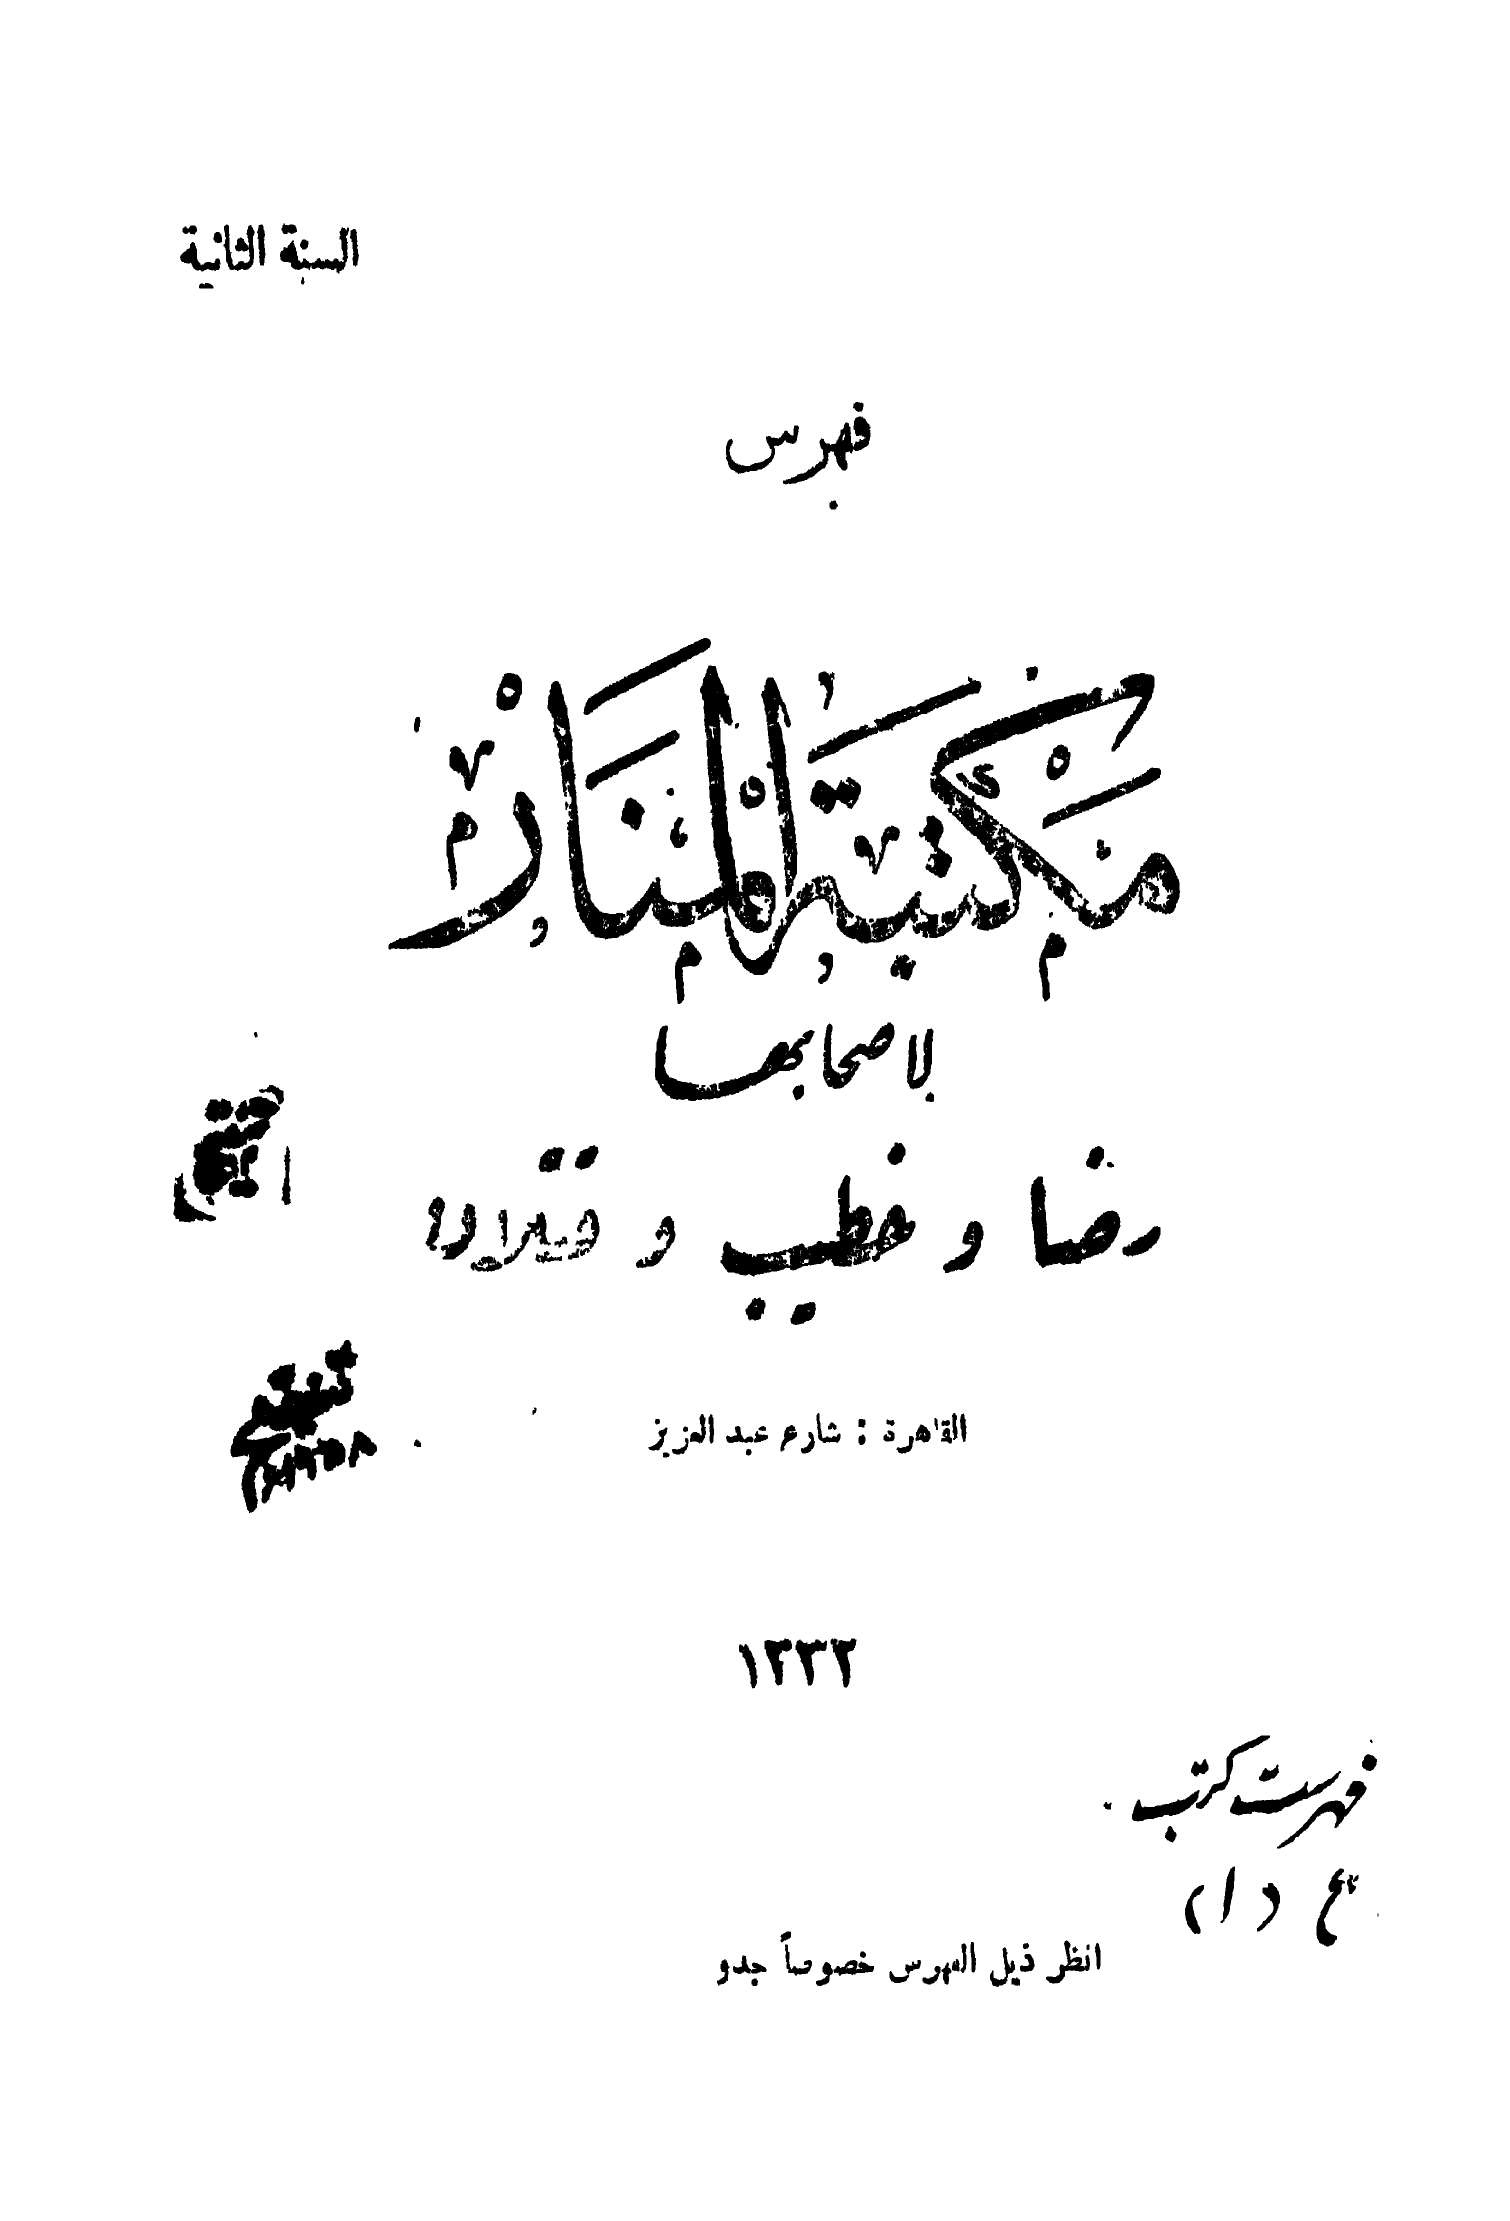 السنة الثانية
فهرس
مكتبة المنار
لاصحابها
رضا و خطيب و قتلان
القاهرة : شارع عبد العزيز
١٣٣٢
فهرست كتب
انظر ذيل الفهرس خصوصاً جدو